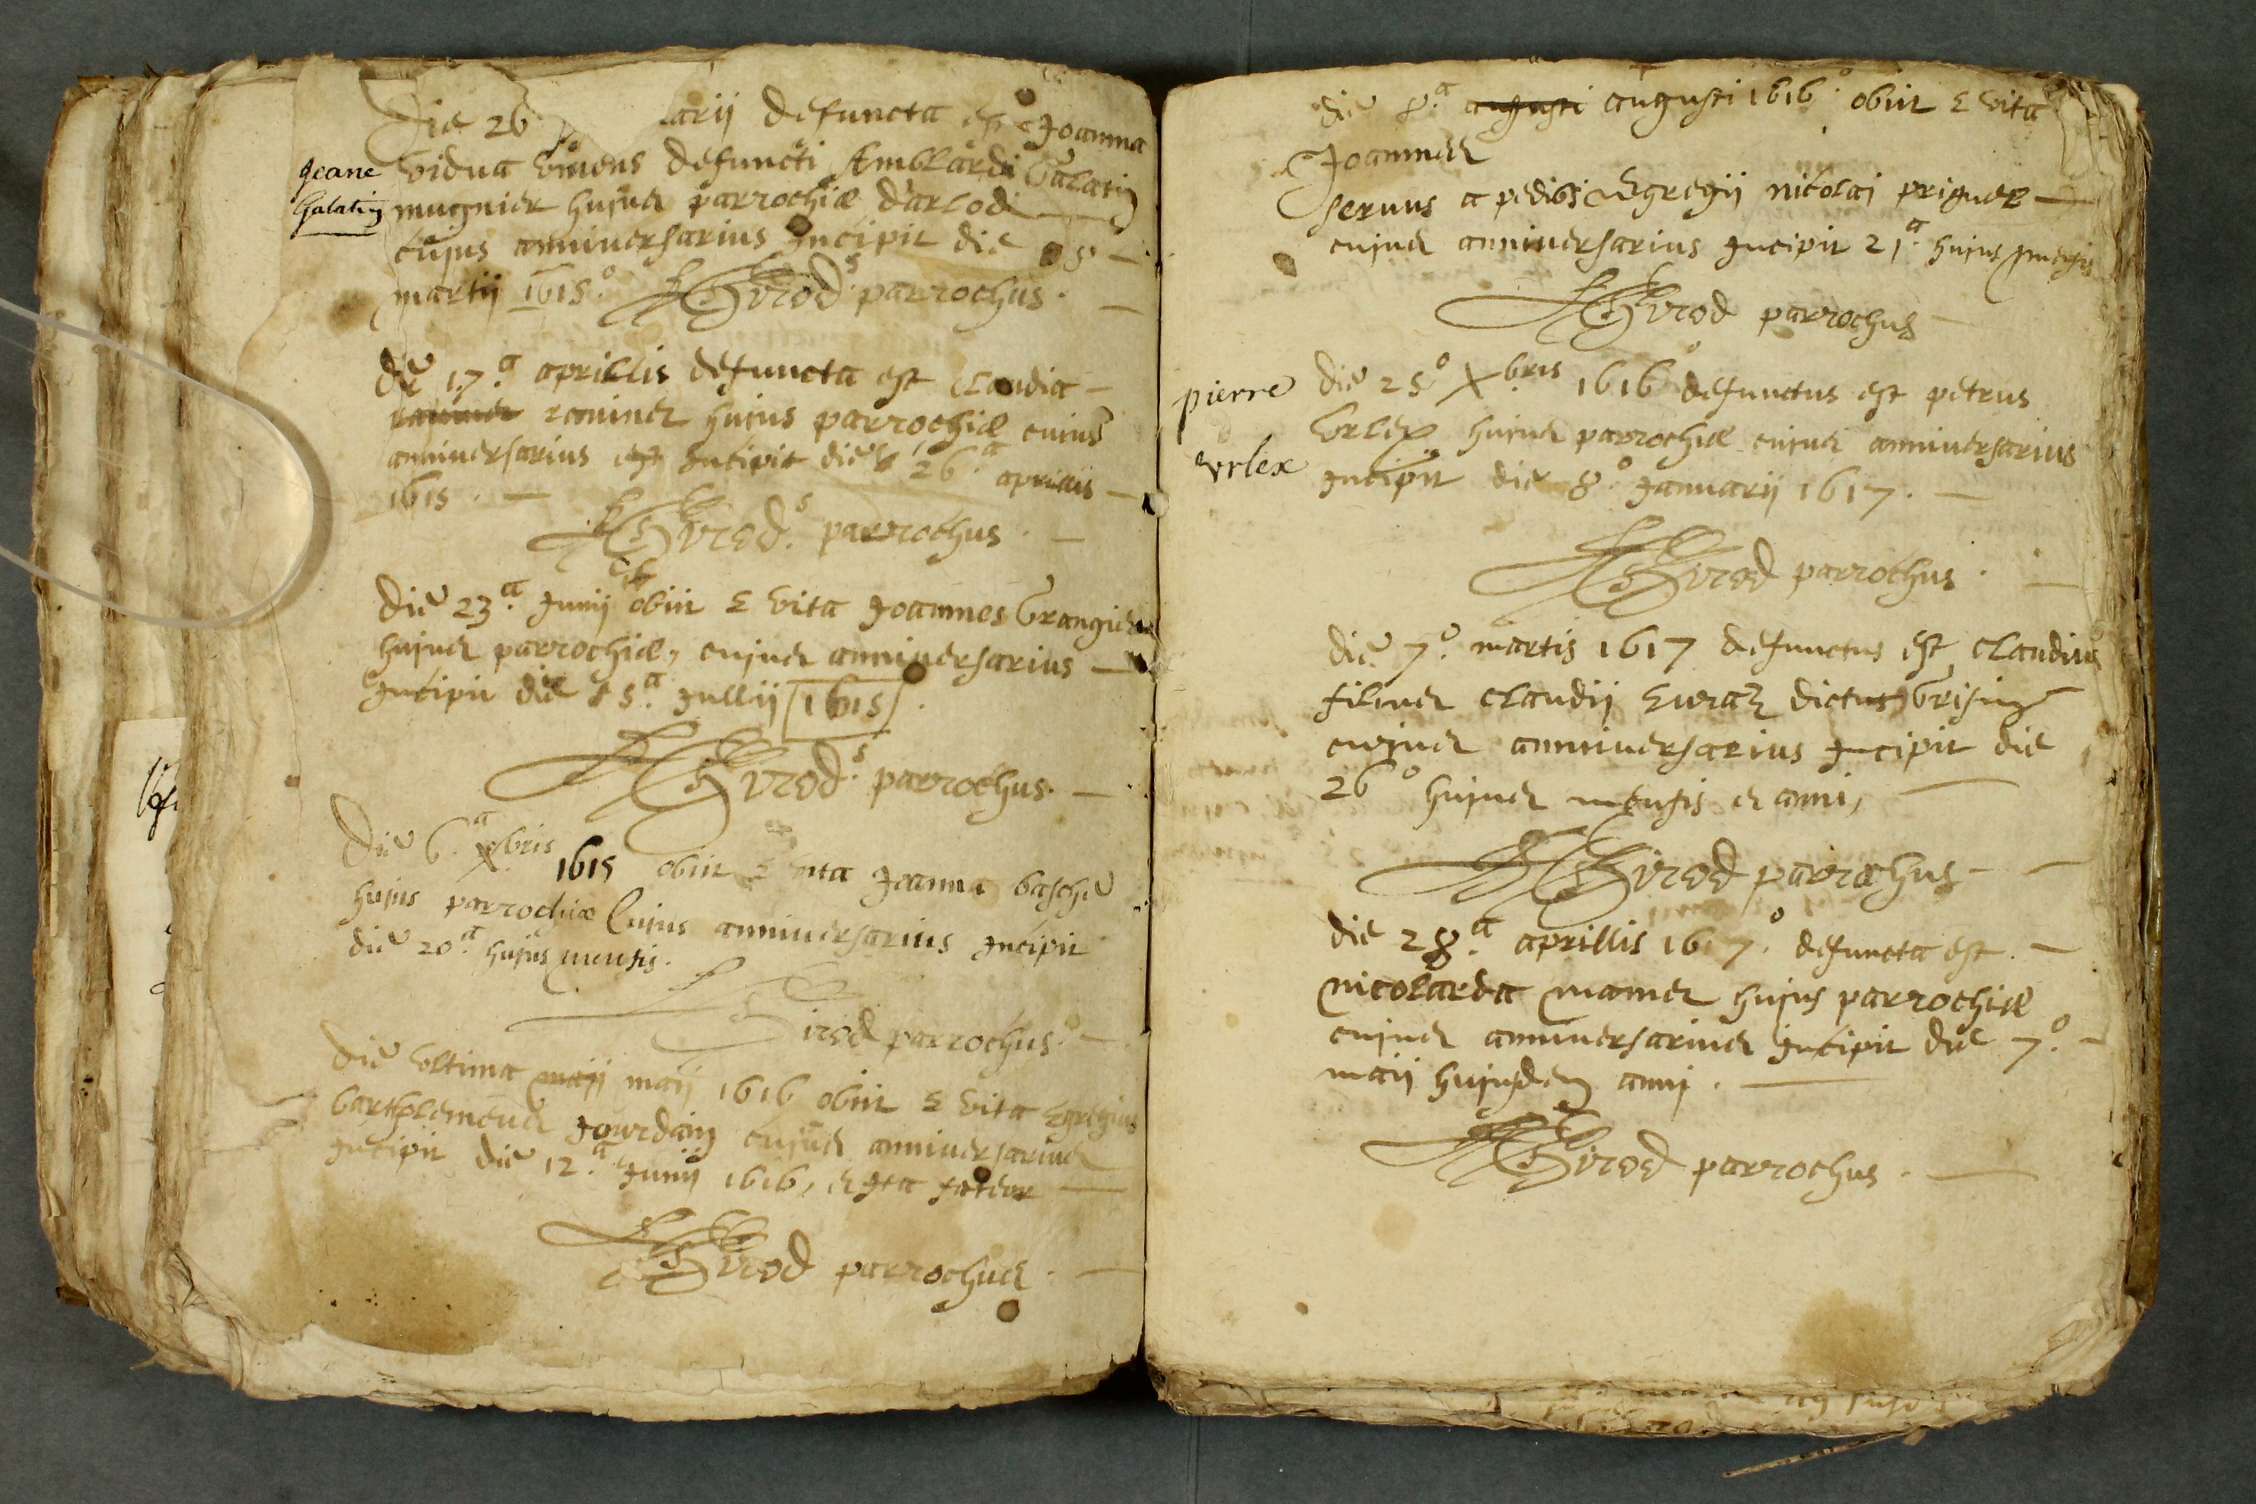 Die 26 arij defuncta est Joanna
vidua vivens defuncti Amblardi Galatin
Jeane
Galatin
mugnier hujus parrochiæ d'arlod
cujus anniversarius Incipit die 8
martij 1615.° Girod.s parrochus.
Die 17.a aprillis defuncta est claudia
raminer hujus parrochiæ cuius
anniversarius Incipit die 26.a aprillis
1615.
Girod.s parrochus.
Die 23.a Junij obiit E vita Joannes Grangier
hujus parrochiæ, cujus anniversarius
Incipit die 5.a Jullij 1615.
Girod.s parrochus.
Die 6.a Xbris 1615 obiit E vita Joanna basche
hujus parrochiæ Cujus anniversarius Incipit
die 20.a hujus mensis.
Girod parrochus.
Die Ultima maji maij 1616 obiit E vita Egregius
bartholemeus Jourdain cujus anniversarius
Incipit die 12.a Junij 1616, et Ita fateor
Girod parrochus.
die 8.a augusti augusti 1616.° obiit E vita
Joannes
servus a pedibs Egregij nicolai
cujus anniversarius Incipit 21.a hujus mensis
Girod parrochus
pierre
vrlex
Die 25° Xbris 1616° defunctus est petrus
Vrlex hujus parrochiæ cujus anniversarius
Incipit die 8.° Januarij 1617.
Girod parrochus.
die 7.° martis 1617 defunctus est claudius
filius claudij dictus
cujus anniversarius Incipit die
26° hujus mensis et anni,
Girod parrochus
die 28.a aprillis 1617.° defuncta est
nicolarda mamer hujus parrochiæ
cujus anniversarius Incipit die 7.°
maij hujusdem anni.
Girod parrochus.